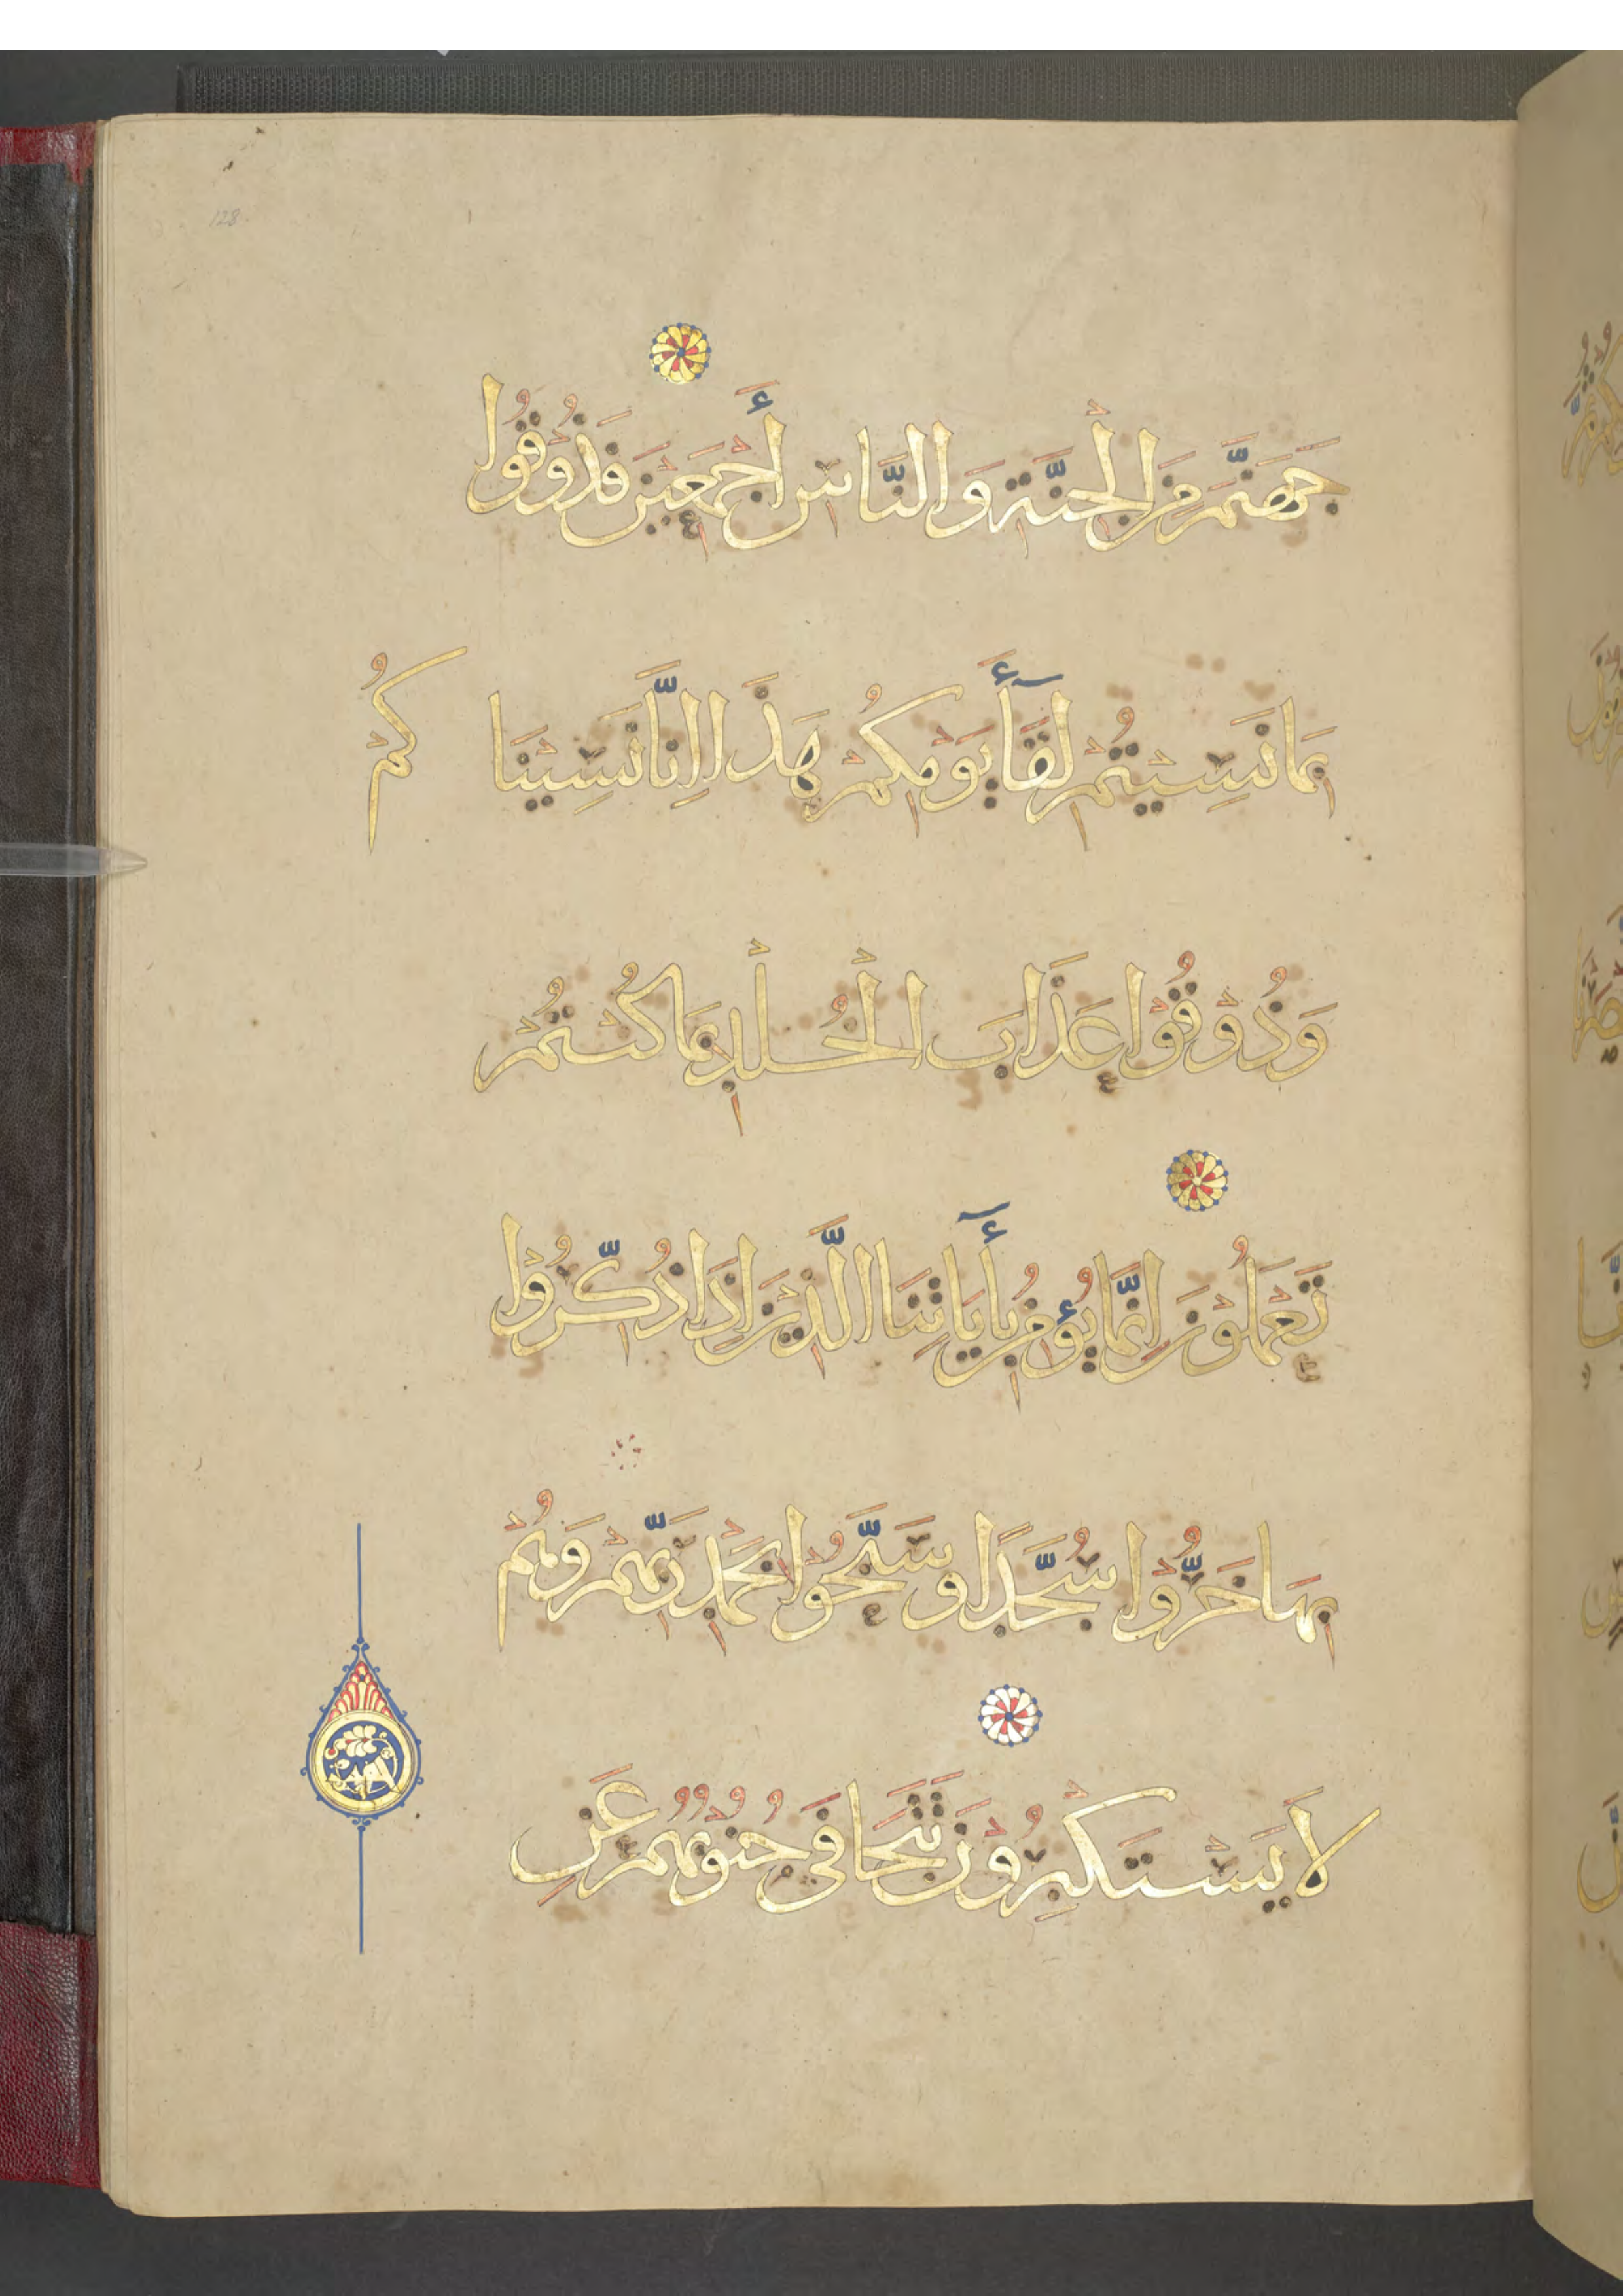 128
جَهَنَّمَ مِنَ الْجِنَّةِ وَالنَّاسِ أَجْمَعِيْنَ فَذُوْقُوا
بِمَا نَسِيْتُمْ لِقَآءَ يَوْمِكُمْ هَذَا إِنَّا نَسِيْنَا كُمْ
وَذُوْقُوْا عَذَابَ الْخُلْدِ بِمَا كُنْتُمْ
تَعْمَلُوْنَ إِنَّمَا يُؤْمِنُ بِأَيَاتِنَا الَّذِيْنَ إِذَا ذُكِّرُوْا
بِهَا خَرُّوْا سُجَّدًا وَسَبَّحُوْا بِحَمْدِ رَبِّهِمْ وَهُمْ
لَا يَسْتَكْبِرُوْنَ تَتَجَافَى جُنُوْبُهُمْ عَنِ